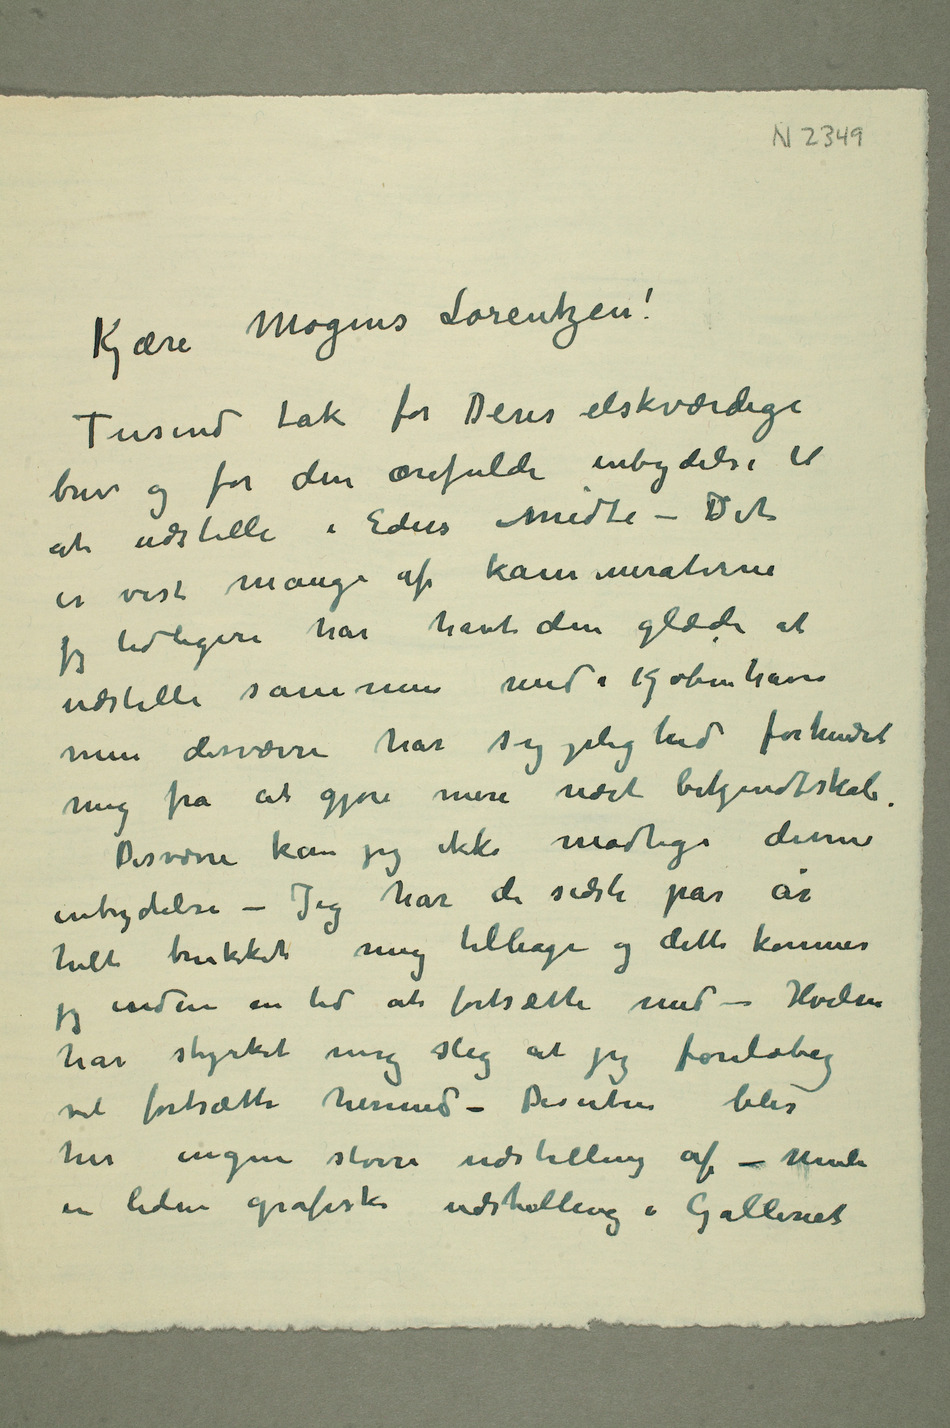 N 2349
Kjære Mogens Lorentzen!
Tusind tak for Deres elskværdige
brev og for den ærefulde inbydelse til
at udstille i Eders Midte – Det
er vist mange af kammeraterne
jeg tidligere har havt den glæde at
udstille sammen med i Kjøbenhavn
men desværre har sygelighed forhindret
mig fra at gjøre mere nært bekjendtskab.
Desværre kan jeg ikke modtage denne
inbydelse – Jeg har de sidste par år
helt trukket mig tilbage og dette kommer
jeg endnu en tid at fortsætte med – Hvilen
har styrket mig slig at jeg foreløbig
vil fortsætte hermed – Desuten blir
her ingen større udstilling af –
en liden grafisk udstilling i Galleriet